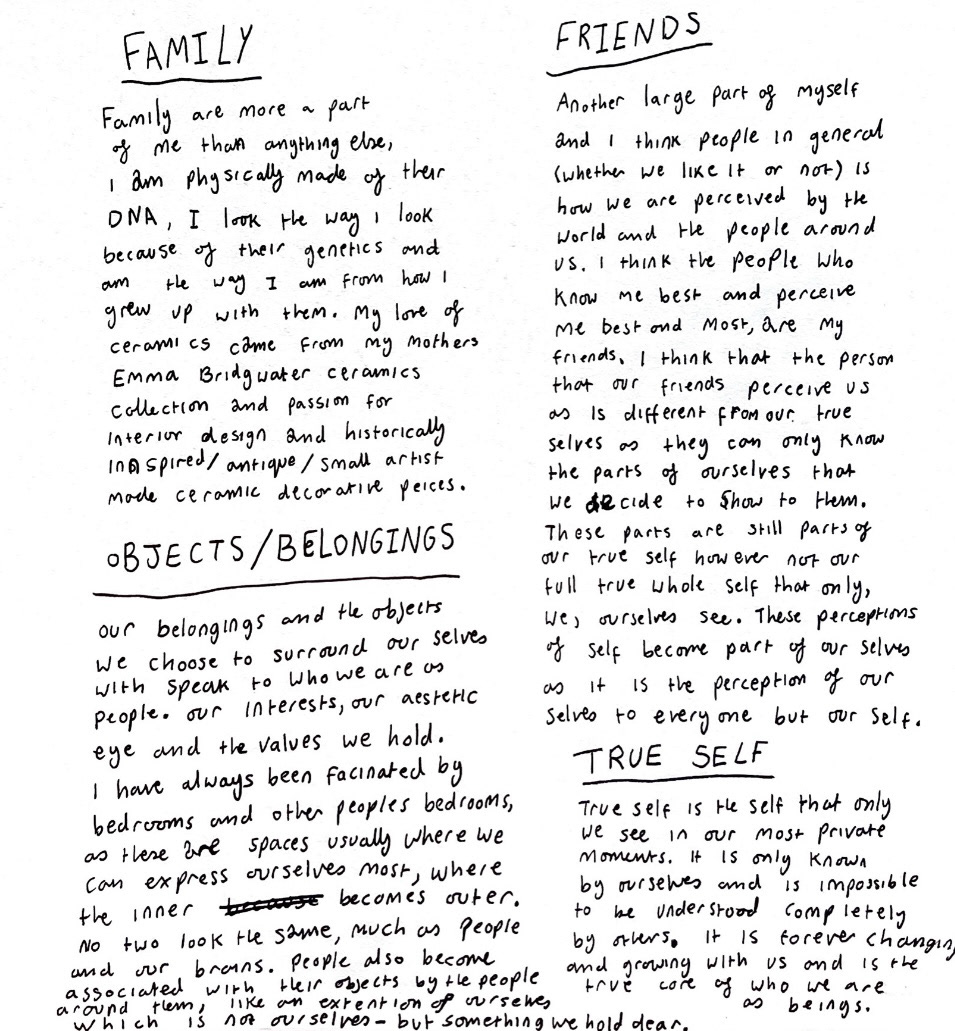 FAMILY
Family are more a part
of me than anything else,
I am physically made of their
DNA, I look the way I look
because of their genetics and
am the way I am from how I
grew up with them. My love of
ceramics came from my mothers
Emma Bridgwater ceramics
collection and passion for
interior design and historically
inspired/antique/small artist
made ceramic decorative peices.
OBJECTS/BELONGINGS
our belongings and the objects
we choose to surround our selves
with speak to who we are as
people. our interests, our aestetic
eye and the values we hold.
I have always been facinated by
bedrooms and other peoples bedrooms,
as these are spaces usually where we
can express ourselves most, where
the inner because becomes outer.
No two look the same, much as people
and our brains. People also become
associated with their objects by the people
around them, like an extention of ourselves
which is not ourselves - but something we hold dear.
FRIENDS
Another large part of myself
and I think people in general
(whether we like it or not) is
how we are perceived by the
world and the people around
us. I think the people who
know me best and perceive
me best and most, are my
friends. I think that the person
that our friends perceive us
as is different from our true
selves as they can only know
the parts of ourselves that
we decide to show to them.
These parts are still parts of
our true self however not our
full true whole self that only,
we, ourselves see. These perceptions
of self become part of our selves
as it is the perception of our
selves to everyone but our self.
TRUE SELF
True self is the self that only
we see in our most private
moments. It is only known
by ourselves and is impossible
to be understood completely
by others. It is forever changing
and growing with us and is the
true core of who we are
as beings.